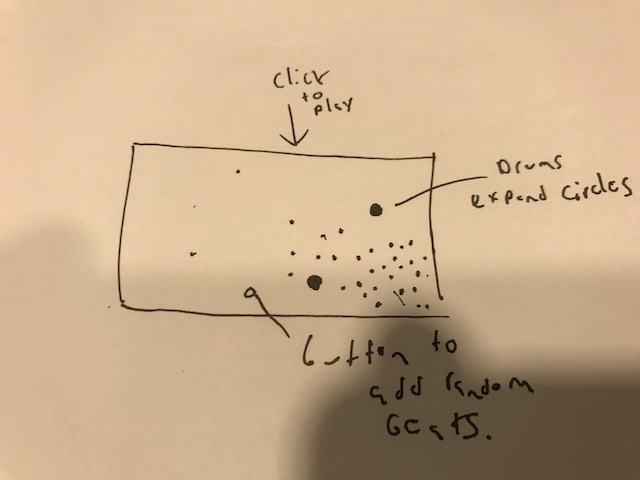 Click
to
play
Drums
expand circles
button to
add random
beats.